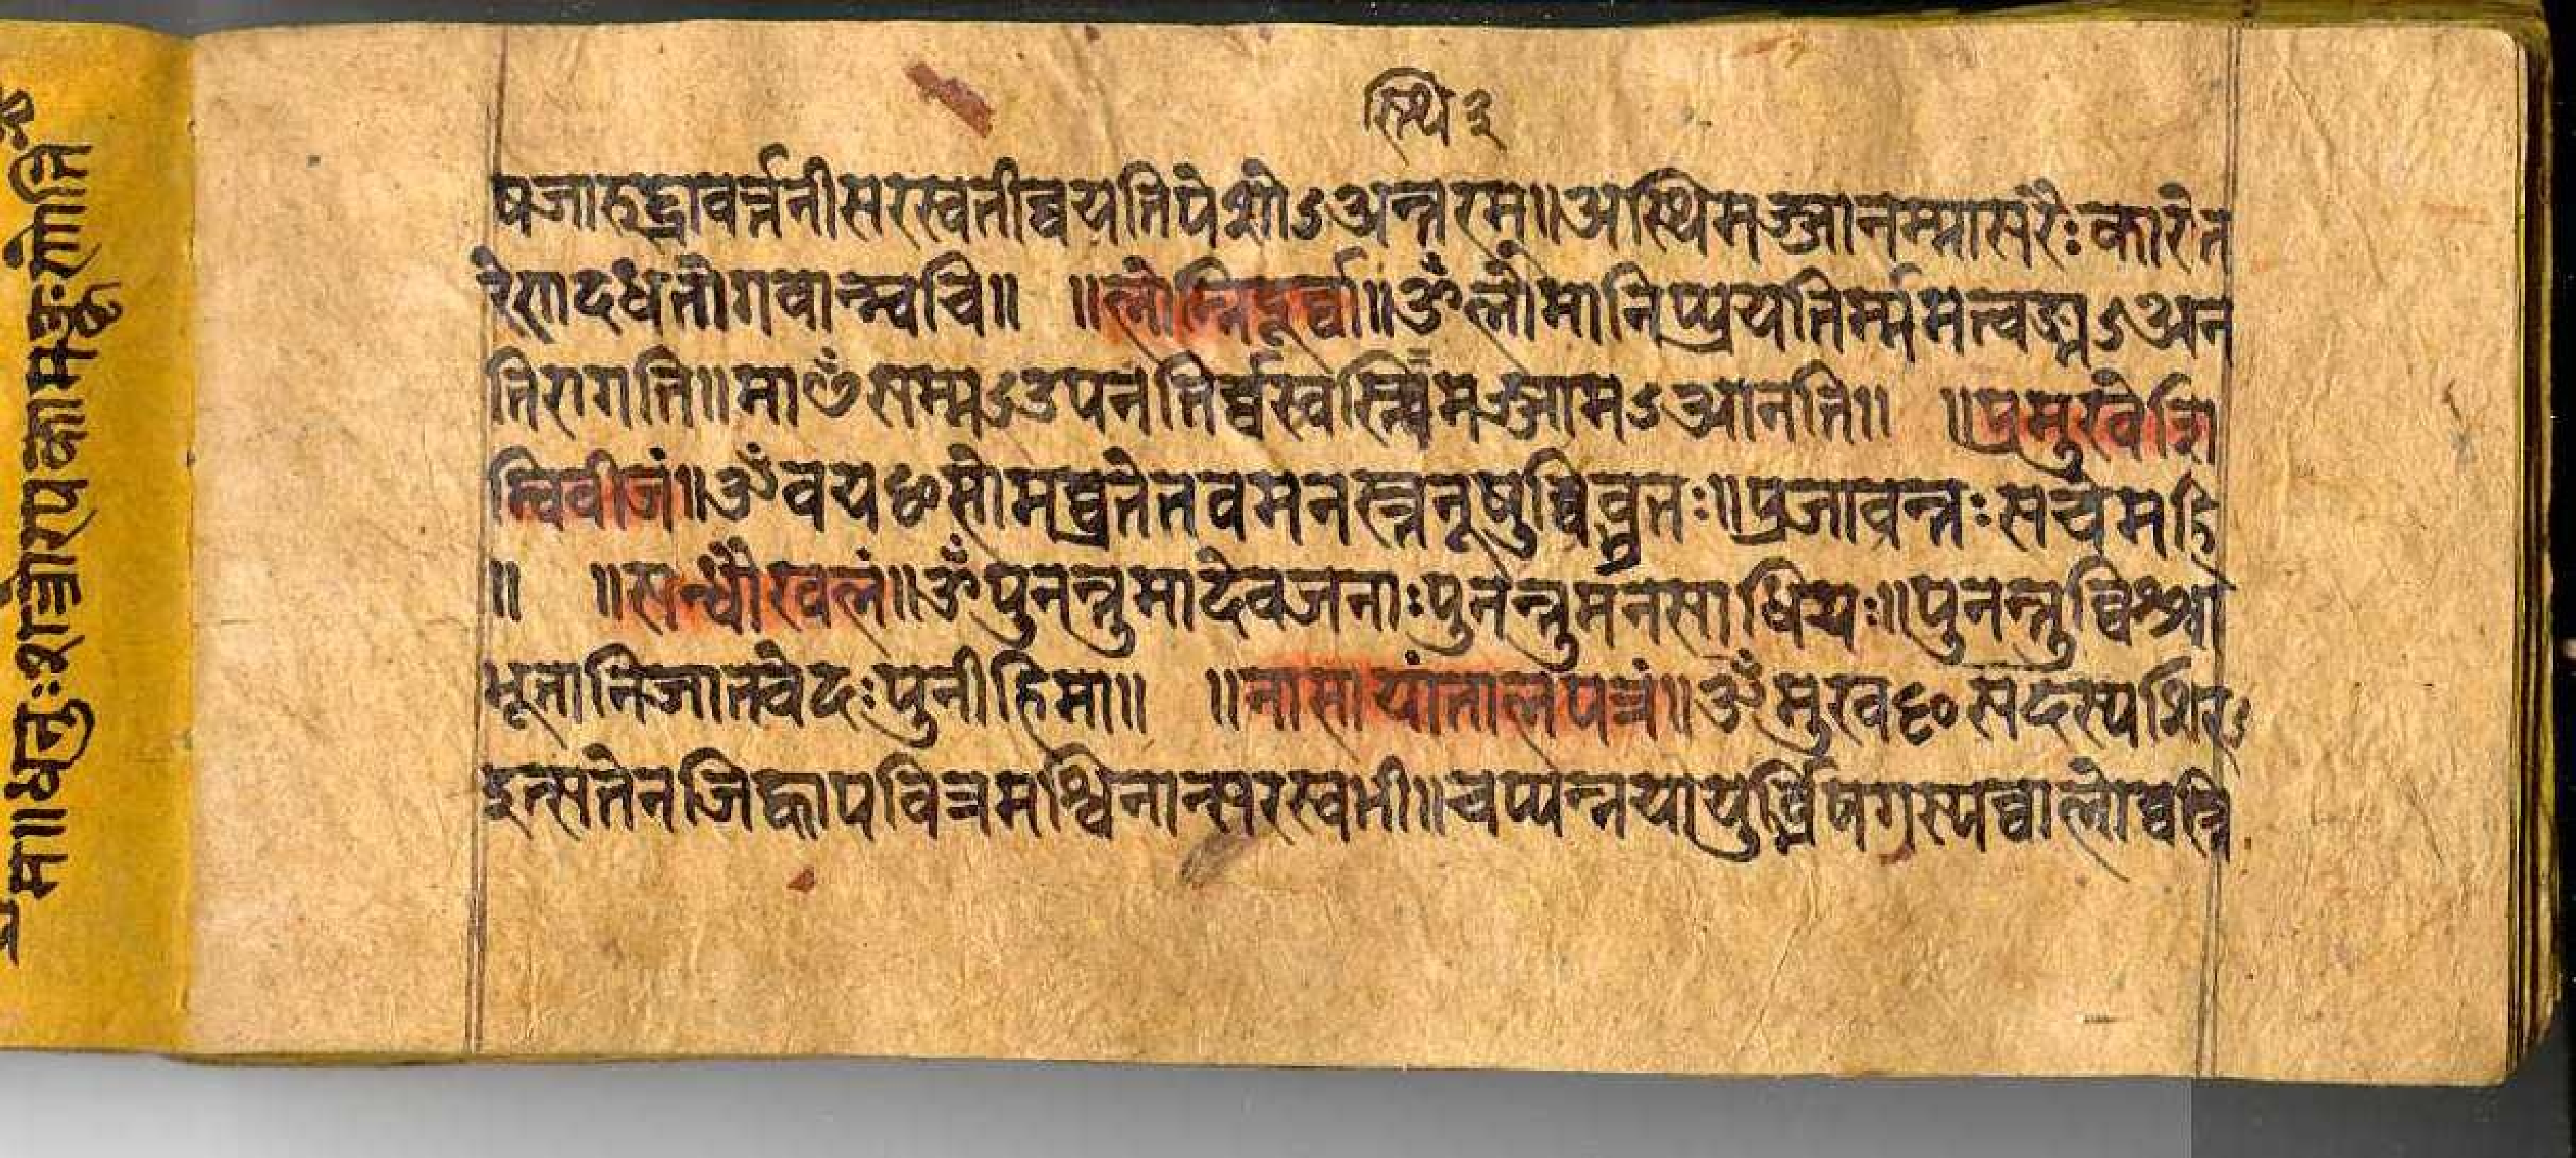 स्थि ३
षजारुद्रावर्त्तनीसरस्वतीव्वयतिपेशोऽअन्तरम्॥अस्थिमज्जानम्मासरैःकारोत
रेणादधतोगवान्त्वचि॥ ॥लोम्निदूर्व्वा॥ॐलोमानिप्प्रयतिर्म्ममत्वङ्मऽअान
तिरागति॥माᳪसम्मऽउपनतिर्व्वस्वस्थिमज्जामऽआनति॥ ॥प्रमुखेन्नि
म्विवीजं॥ॐवयᳪसोमव्रतेतवमनस्तनूषुबिब्भ्रतः॥प्रजावन्तःसचेमहि
॥ ॥सन्धौखलं॥ॐपुनन्तुमादेवजनाःपुनन्तुमनसाधियः॥पुनन्तुव्विश्वा
भूतानिजातवेदःपुनीहिमा॥ ॥नासायांतालपत्रं॥ॐमुखᳪसदस्यशिरऽ
इत्सतेनजिह्वापवित्रमश्विनान्सरस्वती॥चप्प्यन्नपायुर्ब्भिषगस्यव्वालोव्वस्ति
मा॥धनुःशार्ङ्गोरथकामङ्कुरोति